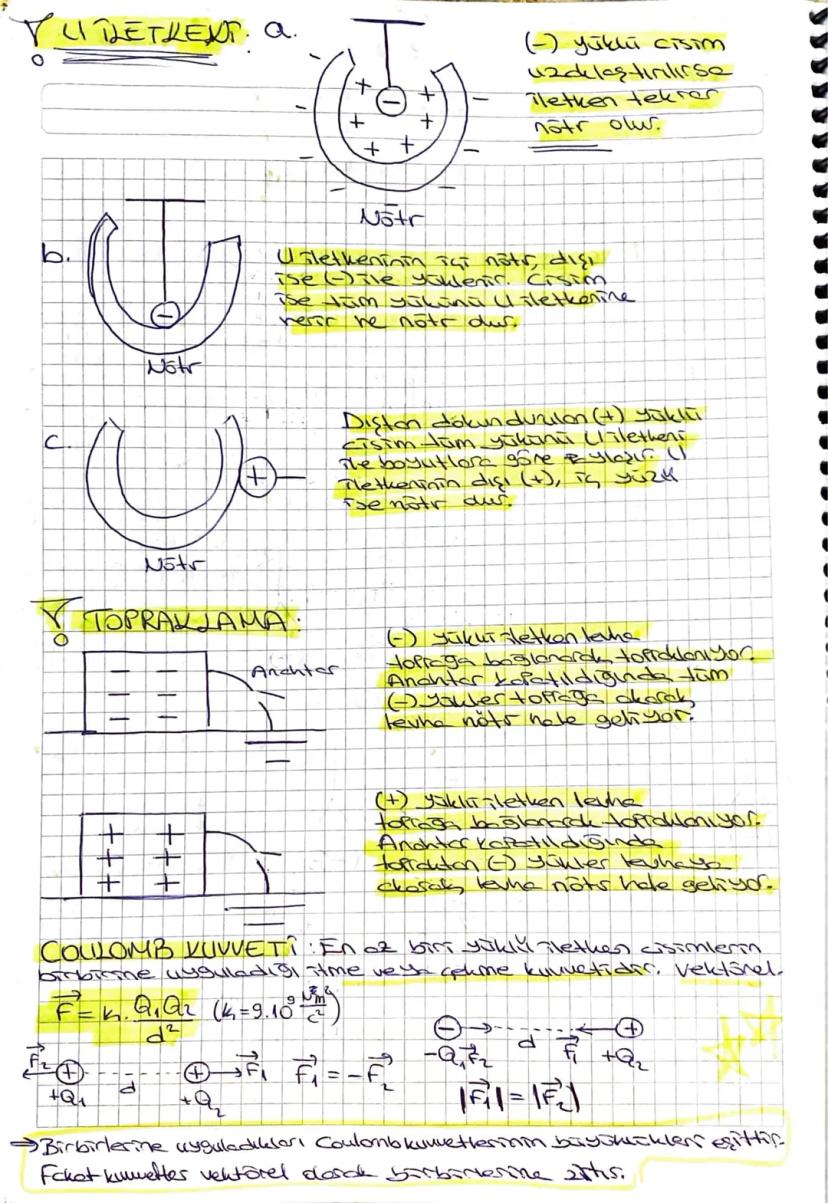 U İLETKENİ: a.
(-) yüklü cisim
uzaklaştırılırsa
iletken tekrar
nötr olur.
+ - +
+ +
+ +
Nötr
b.
-
Nötr
U iletkeninin içi nötr, dışı
ise (-) ile yüklenir. Cisim
ise tüm yükünü U iletkenine
verir ve nötr olur.
c.
+
Nötr
Dıştan dokundurulan (+) yüklü
cisim tüm yükünü U iletkeni
ile boyutlara göre paylaşır. U
iletkeninin dışı (+), iç yüzü
ise nötr olur.
TOPRAKLAMA:
Anahtar
(-) yüklü iletken levha
toprağa bağlanarak topraklanıyor.
Anahtar kapatıldığında tüm
(-) yükler toprağa akarak,
levha nötr hale geliyor.
+ +
+ +
+ +
(+) yüklü iletken levha
toprağa bağlanarak topraklanıyor.
Anahtar kapatıldığında
topraktan (-) yükler levhaya
akarak, levha nötr hale geliyor.
COULOMB KUVVETİ: En az biri yüklü iletken cisimlerin
birbirine uyguladığı itme veya çekme kuvvetidir. Vektörel.
F = k. Q1Q2 / d² (k=9.10⁹ Nm²/c²)
F2 + d + F1 F1 = -F2
+Q1 +Q2
- d +
-Q1 F2 F1 +Q2
|F1| = |F2|
→ Birbirlerine uyguladıkları Coulomb kuvvetlerinin büyüklükleri eşittir.
Fakat kuvvetler vektörel olarak birbirlerine zıttır.